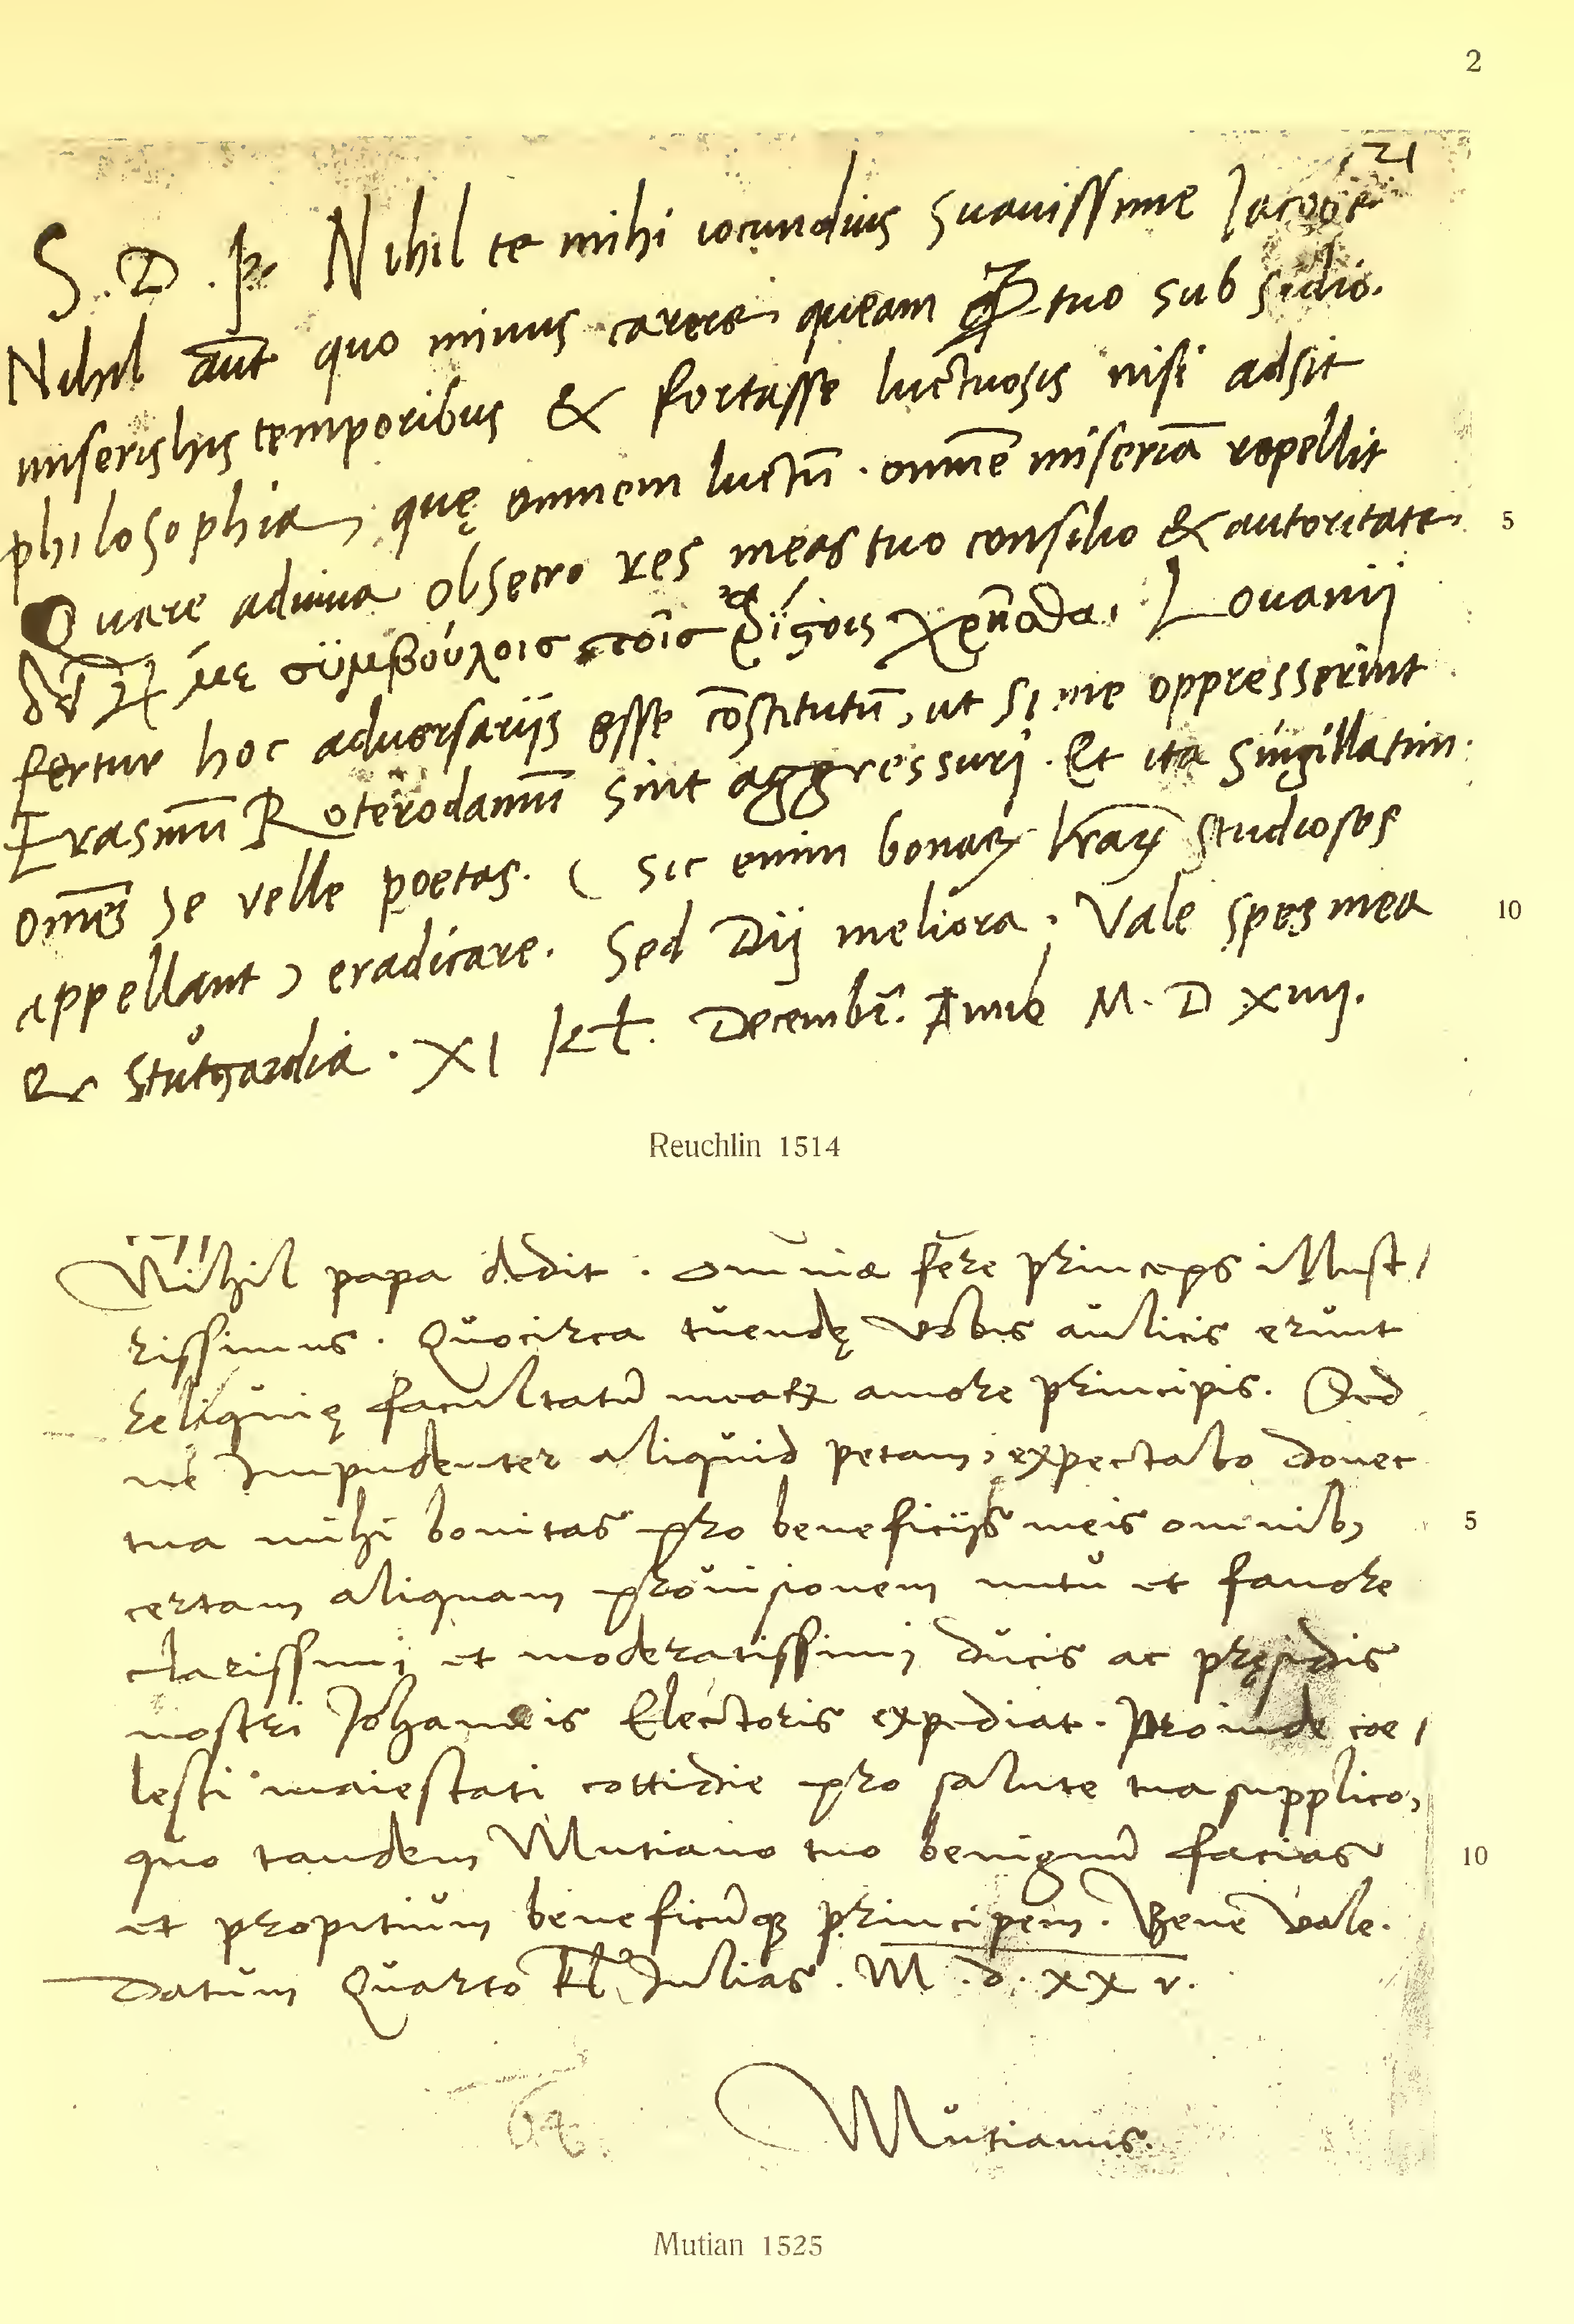 2
21
S. D. p. Nihil te mihi iocundius suauissime Jacobe
Nihil aūt quo minus carere queam q̄ tuo subsidio.
miseris his temporibus & fortasse luctuosis nisi adsit
philosophia, quę omnem luctū. omnē miseriā repellit 5
Quare adiuua obsecro res meas tuo consilio & autoritate.
με συμβούλοις Louanij
fertur hoc aduersarijs esse cōstitutū, ut si me oppresserint
Erasmū Roterodamū sint aggressuri. Et ita singillatim
om̄es se velle poetas. ( sic enim bonaꝝ lr̄aꝝ studiosos
appellant ) eradicare. Sed Dij meliora. Vale spes mea 10
Ex Stůtgardia. XI kł. Decembr̄. Anno M. D XIIIJ.
Reuchlin 1514
Nihil papa dedit. omnia fere princeps illust/
rissimus. Quocirca tuendę vobis aulicis erunt
reliquię facultatū meaꝝ amore principis. Sed
ne impudenter aliquid petam, expectabo donec
tua mihi bonitas pro beneficijs meis omnibꝫ 5
certam aliquam prouisionem nutu et fauore
clarissimi et moderatissimi ducis ac pręsidis
nostri Johannis Electoris expediat. Proinde coe/
lesti maiestati cottidie pro salute tua supplico,
quo tandem Mutiano tuo benignū facias 10
et propitium beneficūqꝫ principem. Bene vale.
Datum Quarto Kl Julias. M. d. xx v.
Mutianus.
Mutian 1525